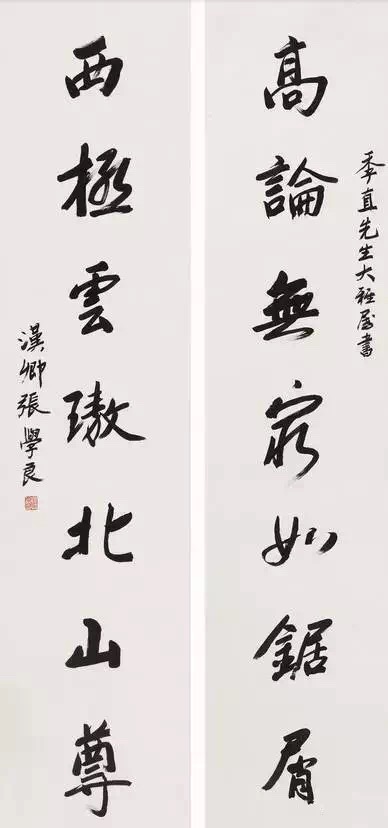 季直先生大雅屬書
高論無窮如鋸屑
西極雲璈北山尊
漢卿張學良